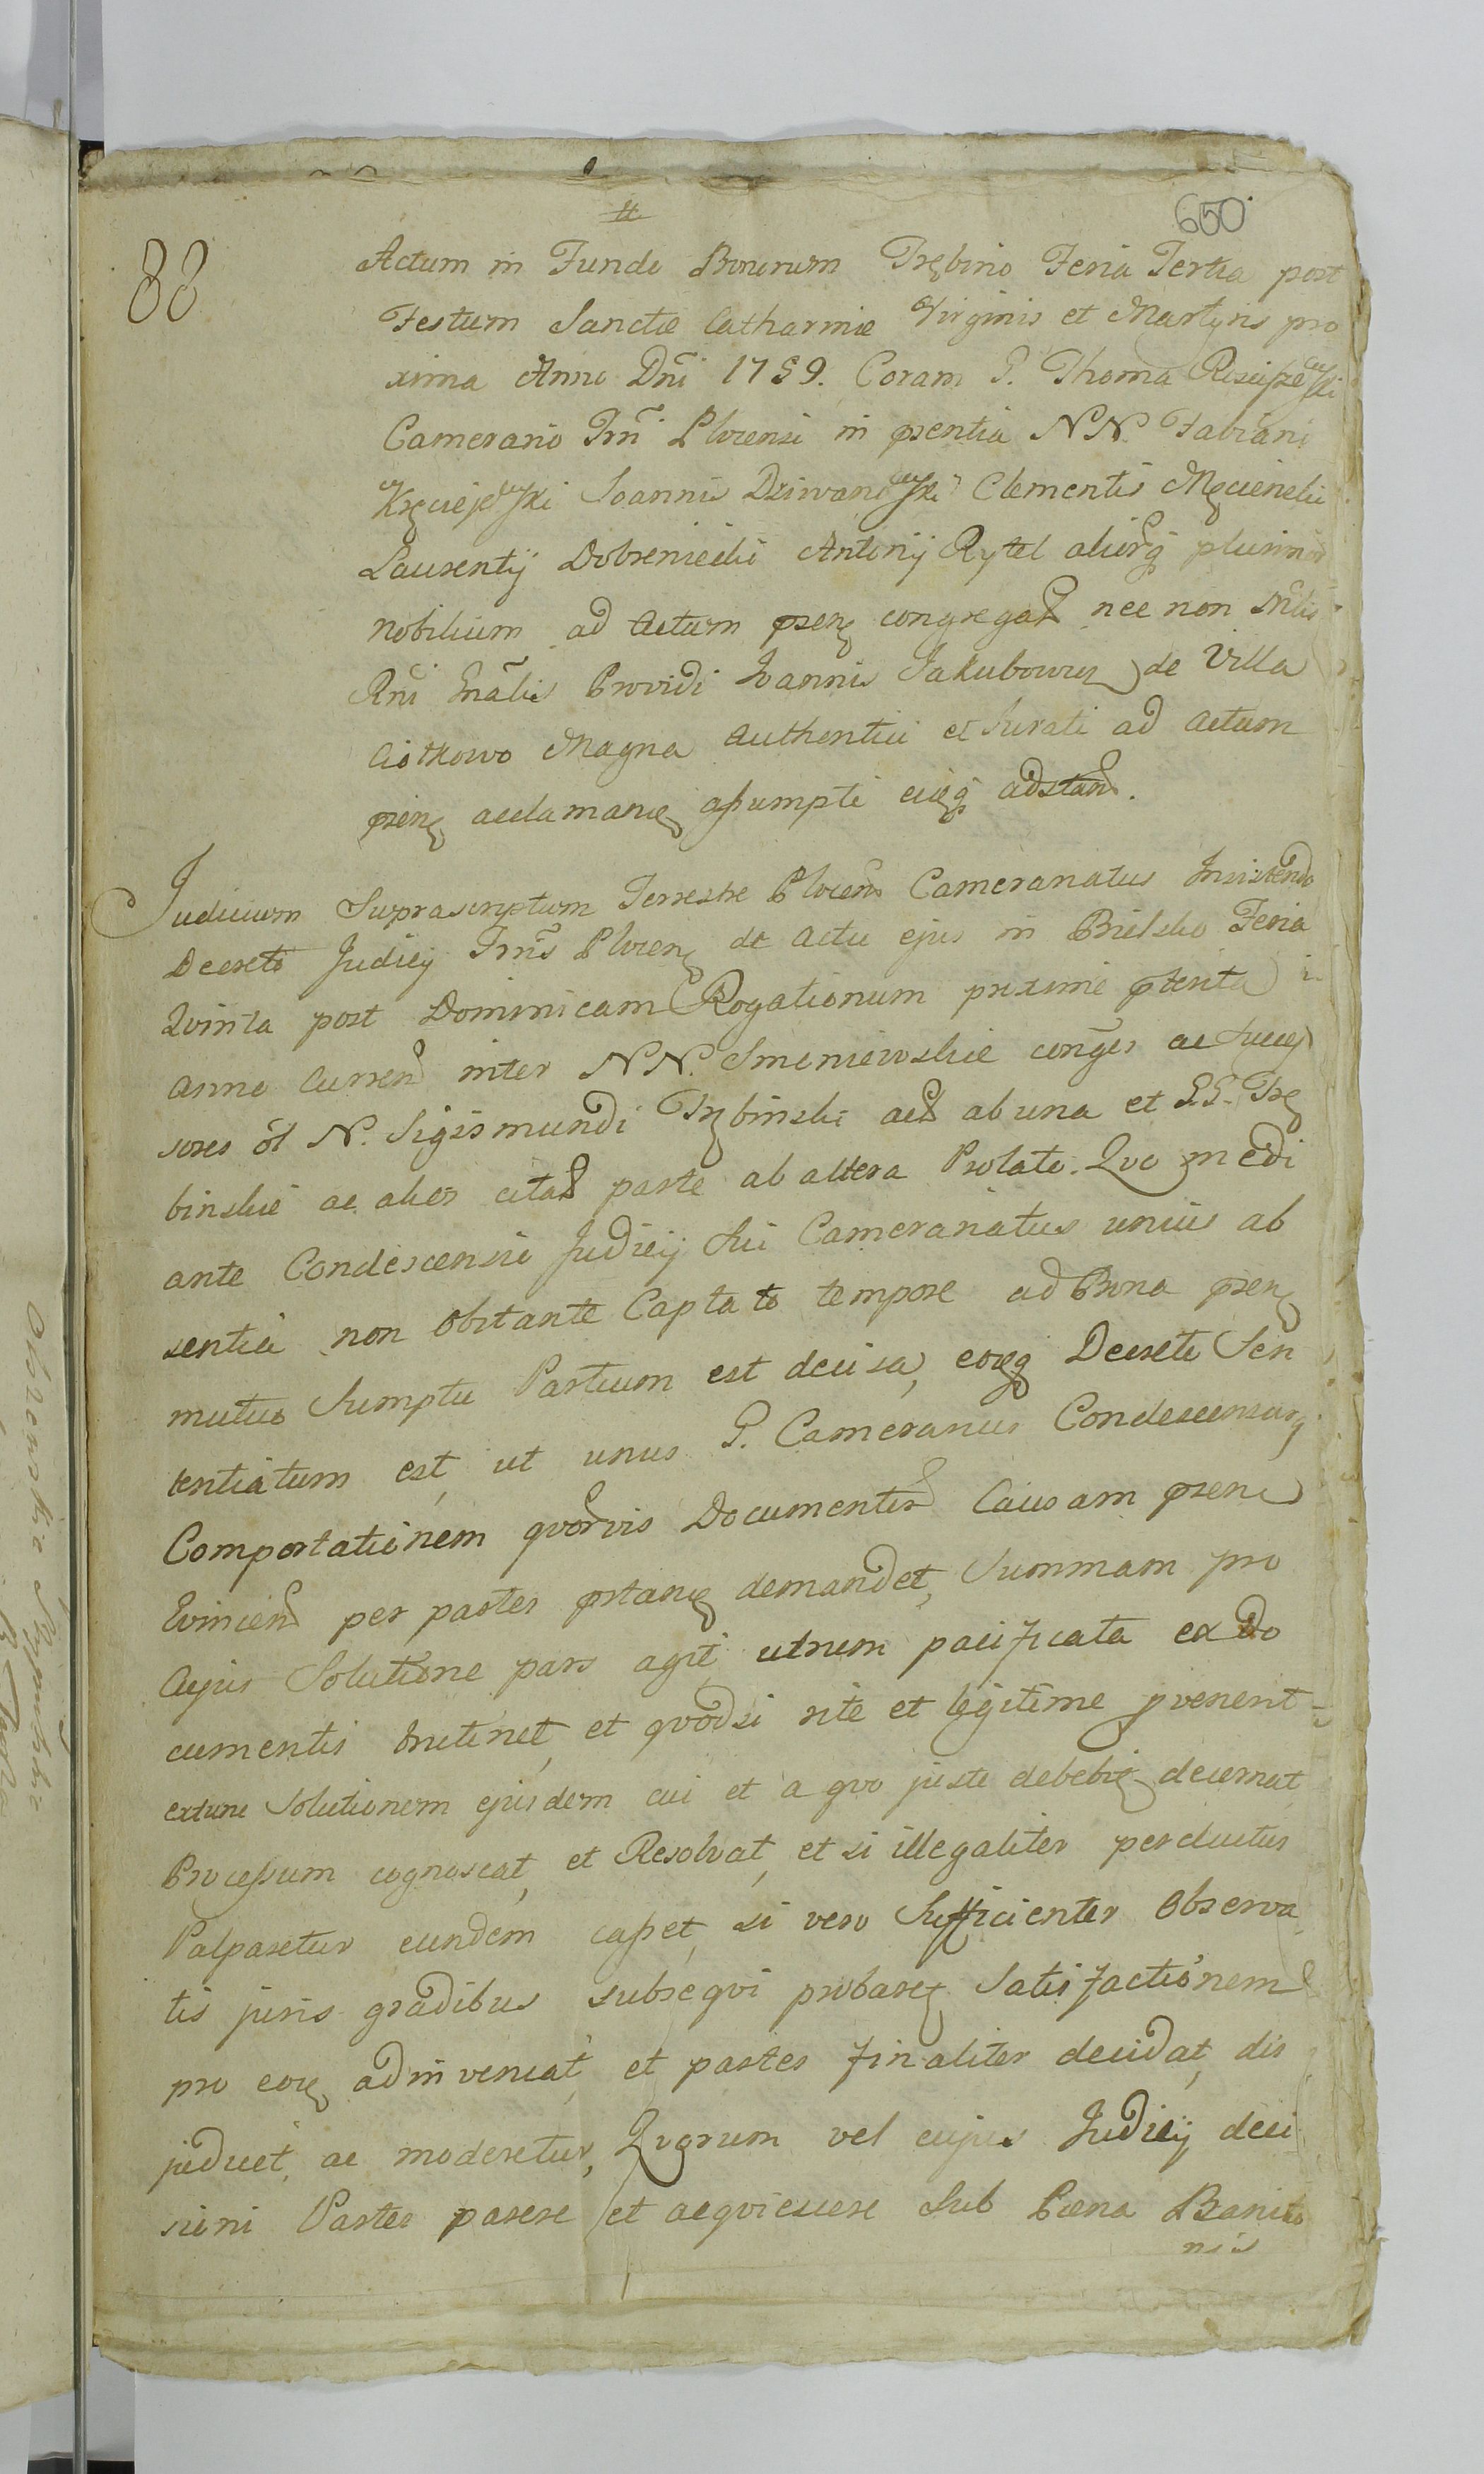 #
650
88
Actum in Fundo Bonorum Trębino Feria Tertia post
Festum Sanctæ Catharinæ Virginis et Martyris pro
xima Anno Dni 1759. Coram G. Thoma
Camerario Trri Plocensi in psentia NN. Fabiani
Joannis Dziwanowski Clementis Męcienski
Laurentij Dobreniecki Antonij Rytel aliorq plurimor
nobilium ad Actum psens congregat nec non Mlis
Rni Gnalis Providi Joannis Jakubowicz de Villa
Ciołkowo Magna Authentici et Jurati ad Actum
psens acclamanq assumpti eidq adstand.
Judicium Suprascriptum Terrestre Plocens Cameranatus Insistendo
Decreto Judicij Trris Plocens de Actu ejus in Bielsko Feria
Qvinta post Dominicam Rogationum proxime pterita in
Anno Curren inter NN. Smoniewskie conges ac Succes
sores ol N. Sigismundi Trębinski act ab una et GG. Trę
binskie ac alios citat parte ab altera Prolato. Qvo medi
ante Condescensio Judicij Sui Cameranatus unius ab
sentia non obstante Captato tempore ad Bona psens
mutuo Sumptu Partium est decisa, eoqq Decreto Sen
tentiatum est, ut unus G. Camerarius Condescensurq
Comportationem qvorvis Documentor Causam psene
Evincien per partes pstanq demandet, Summam pro
Cujus Solutione pars agit utrum pacificata ex do
cumentis trutinet, et qvodsi rite et legitime pvenerit
extunc Solutionem ejusdem cui et a qvo juste debebit decernat
Processum cognoscat, et Resolvat, et si illegaliter perductus
Palparetur eundem casset, si vero Sufficienter Observa
tis juris gradibus subseqvi probaret Satisfactionem
pro eoq adinveniat, et partes finaliter decidat, dis
judicet, ac moderetur, Qvorum vel cujus Judicij deci
sioni Partes parere et acqviescere Sub Pœna Banito
nis